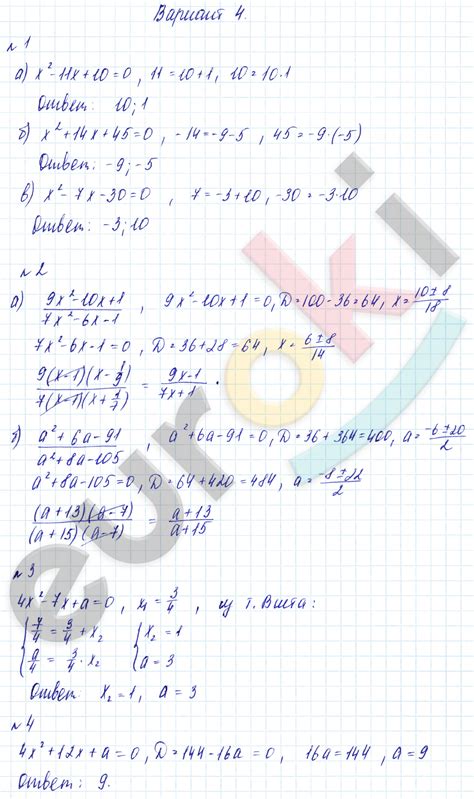 Вариант 4.
№1
а) x²-11x+10=0, 11=10+1, 10=10·1
Ответ: 10; 1
б) x²+14x+45=0, -14=-9-5, 45=-9·(-5)
Ответ: -9; -5
в) x²-7x-30=0, 7=-3+10, -30=-3·10
Ответ: -3; 10
№2
а) (9x²-10x+1)/(7x²-6x-1), 9x²-10x+1=0, D=100-36=64, x=(10±8)/18
7x²-6x-1=0, D=36+28=64, x=(6±8)/14
(9(x-1)(x-1/9))/(7(x-1)(x+1/7)) = (9x-1)/(7x+1).
б) (a²+6a-91)/(a²+8a-105), a²+6a-91=0, D=36+364=400, a=(-6±20)/2
a²+8a-105=0, D=64+420=484, a=(-8±22)/2
((a+13)(a-7))/((a+15)(a-7)) = (a+13)/(a+15)
№3
4x²-7x+a=0, x₁=3/4, из т. Виета:
{7/4=3/4+x₂ {x₂=1
{a/4=3/4·x₂ {a=3
Ответ x₂=1, a=3
№4
4x²+12x+a=0, D=144-16a=0, 16a=144, a=9
Ответ: 9.
euroki